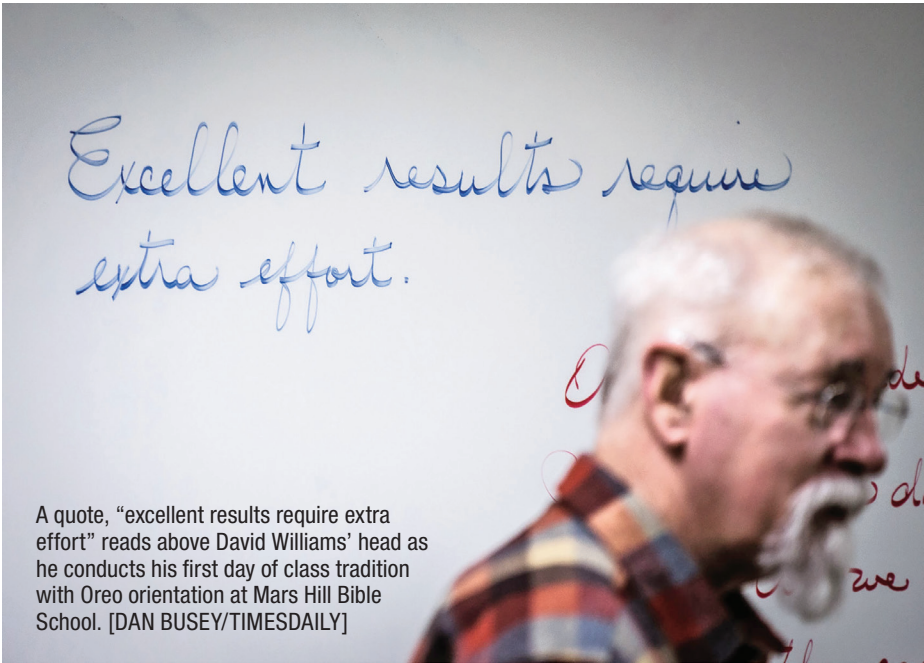 Excellent results require
extra effort.
A quote, “excellent results require extra
effort” reads above David Williams’ head as
he conducts his first day of class tradition
with Oreo orientation at Mars Hill Bible
School. [DAN BUSEY/TIMESDAILY]